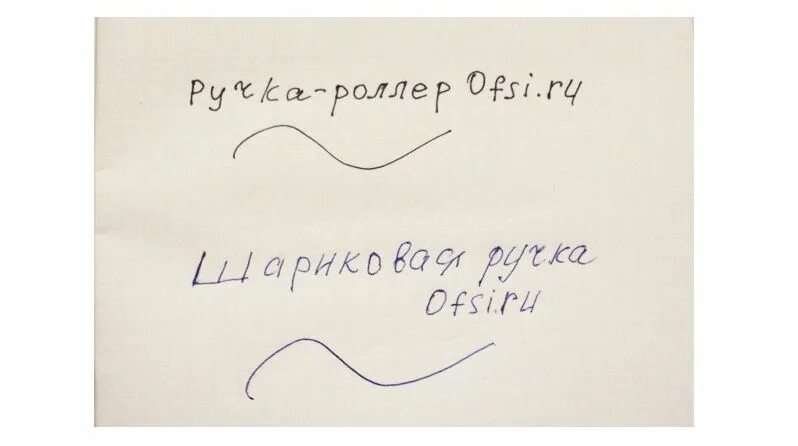 Ручка-роллер Ofsi.ru
Шариковая ручка
Ofsi.ru